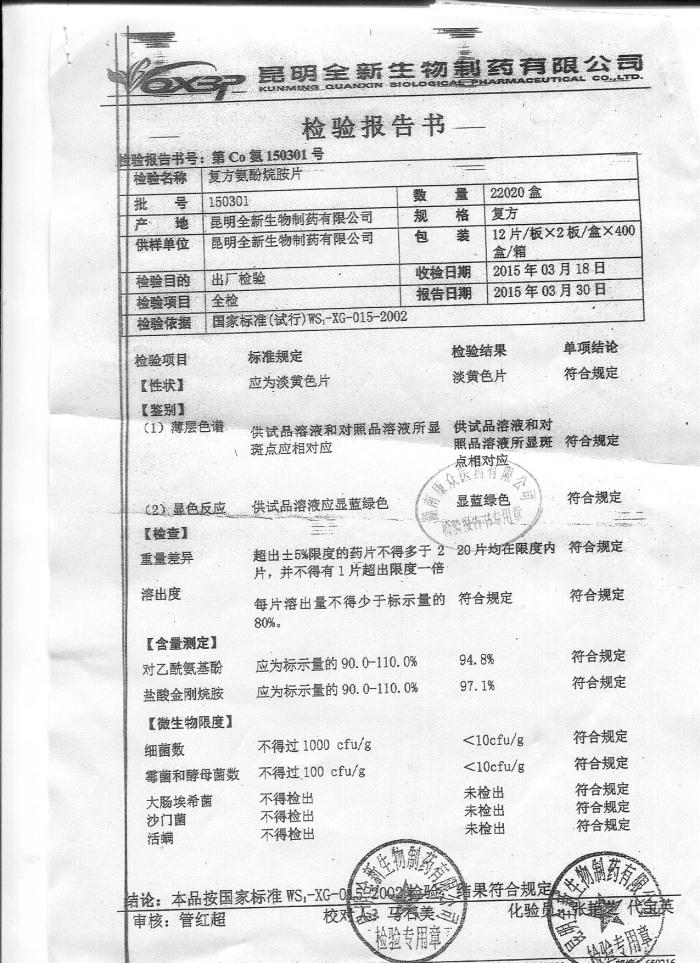 QXBP 昆明全新生物制药有限公司
KUNMING QUANXIN BIOLOGICAL PHARMACEUTICAL CO.,LTD.
检验报告书
检验报告书号：第 Co 氨 150301 号
检验名称 复方氨酚烷胺片
批 号 150301 数 量 22020 盒
产 地 昆明全新生物制药有限公司 规 格 复方
供样单位 昆明全新生物制药有限公司 包 装 12 片/板×2 板/盒×400
盒/箱
检验目的 出厂检验 收检日期 2015 年 03 月 18 日
检验项目 全检 报告日期 2015 年 03 月 30 日
检验依据 国家标准(试行)WS₁-XG-015-2002
检验项目 标准规定 检验结果 单项结论
【性状】 应为淡黄色片 淡黄色片 符合规定
【鉴别】
（1）薄层色谱 供试品溶液和对照品溶液所显 供试品溶液和对
斑点应相对应 照品溶液所显斑 符合规定
点相对应
（2）显色反应 供试品溶液应显蓝绿色 显蓝绿色 符合规定
康众医药有限公司
检验报告书专用章
【检查】
重量差异 超出±5%限度的药片不得多于 2 20 片均在限度内 符合规定
片，并不得有 1 片超出限度一倍
溶出度 每片溶出量不得少于标示量的 符合规定 符合规定
80%。
【含量测定】
对乙酰氨基酚 应为标示量的 90.0-110.0% 94.8% 符合规定
盐酸金刚烷胺 应为标示量的 90.0-110.0% 97.1% 符合规定
【微生物限度】
细菌数 不得过 1000 cfu/g ＜10cfu/g 符合规定
霉菌和酵母菌数 不得过 100 cfu/g ＜10cfu/g 符合规定
大肠埃希菌 不得检出 未检出 符合规定
沙门菌 不得检出 未检出 符合规定
活螨 不得检出 未检出 符合规定
结论：本品按国家标准 WS₁-XG-015-2002 检验，结果符合规定。
审核：管红超 校对人： 马春美 化验员： 代宝英
昆明全新生物制药有限公司
检验专用章
昆明全新生物制药有限公司
检验专用章